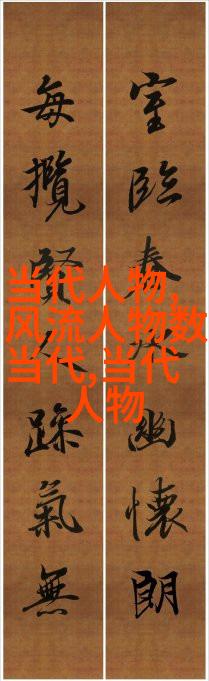 室臨春幽懷朗
每攬賢躁氣無
当代人物,
风流人物数
当代,当代
人物